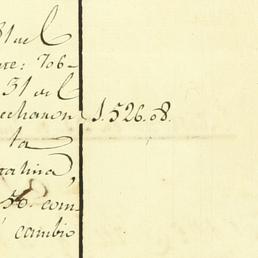 31 del
re: 706-
31 del
echaron 1.526.08.
ta
talina,
30. com
cambio